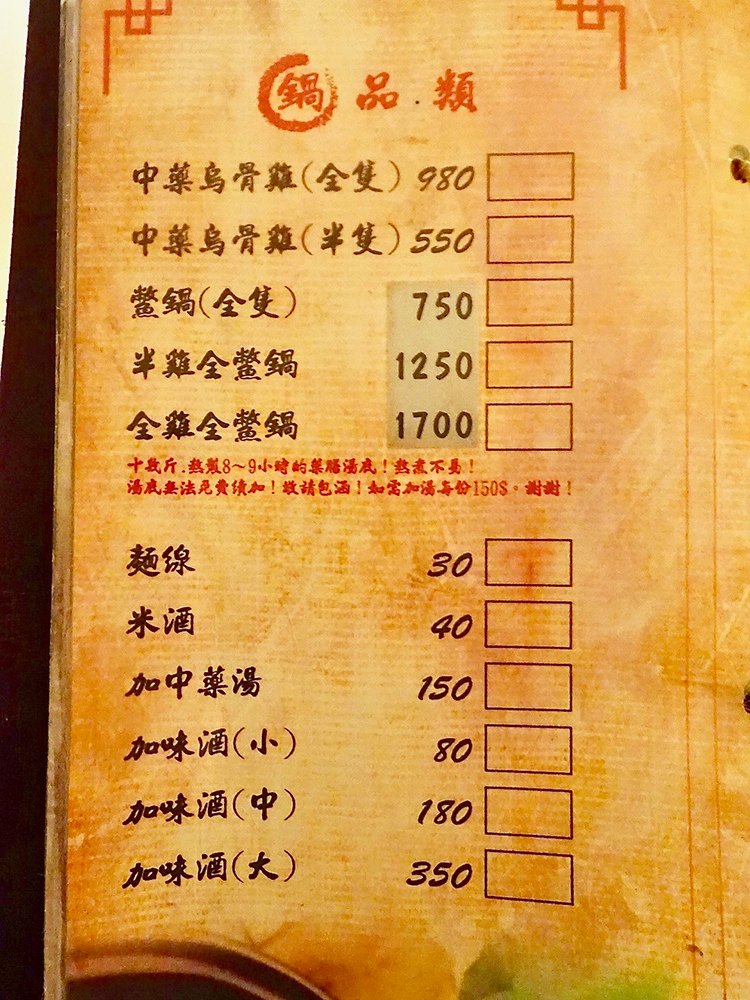 鍋品.類
中藥烏骨雞(全隻) 980
中藥烏骨雞(半隻) 550
鱉鍋(全隻) 750
半雞全鱉鍋 1250
全雞全鱉鍋 1700
十數斤.熬製8~9小時的藥膳湯底!熬煮不易!
湯底無法免費續加!敬請包涵!如需加湯每份150$。謝謝!
麵線 30
米酒 40
加中藥湯 150
加味酒(小) 80
加味酒(中) 180
加味酒(大) 350